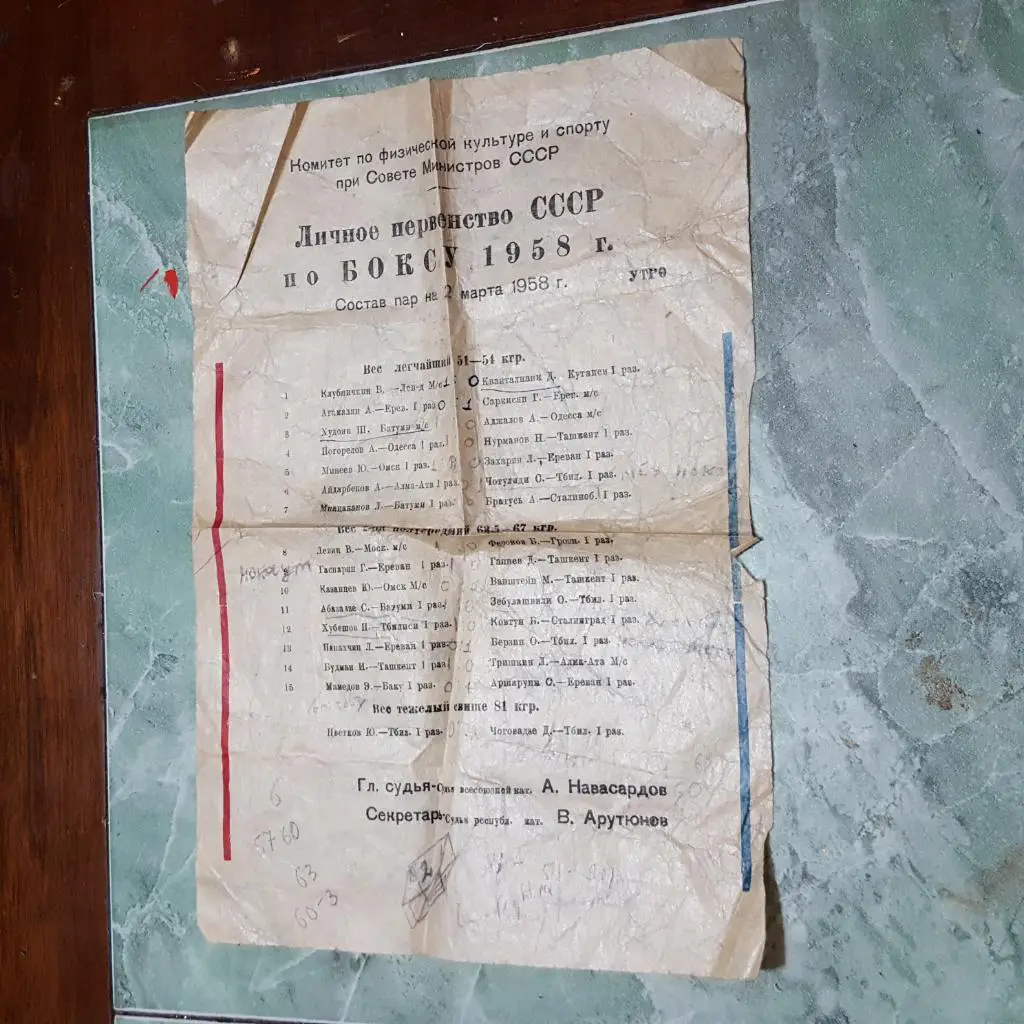 Комитет по физической культуре и спорту
при Совете Министров СССР
Личное первенство СССР
по БОКСУ 1958 г.
Состав пар на 2 марта 1958 г. УТРО
Вес легчайший 51—54 кгр.
1 Клубничкин В. —Лен-д М/с 1 0 Кванталиани Д. Кутаиси I раз.
2 Агамалян А.—Ерев. I раз 0 1 Саркисян Г.—Ерев. м/с
3 Худоян Ш. Батуми м/с 0 Аджалов А.—Одесса м/с
4 Погорелов А.—Одесса I раз. 0 Нурманов Н.—Ташкент I раз.
5 Минеев Ю.—Омск I раз. 1 0 Захарян Л.—Ереван I раз.
6 Айдарбеков А.—Алма-Ата I раз. Чотулиди С.—Тбил. I раз.
7 Мнацаканов Л.—Батуми I раз. Братусь А.—Сталиноб. I раз.
Вес полусредний 63,5—67 кгр.
8 Левин В.—Моск. м/с 0 Федонов Б.—Грозн. I раз.
нокаут
9 Гаспарян Г.—Ереван I раз. Ганиев Д.—Ташкент I раз.
10 Казанцев Ю.—Омск М/с Ванштейн М.—Ташкент I раз.
11 Абазадзе С.—Батуми I раз. Зебулашвили О.—Тбил. I раз.
12 Хубешов И.—Тбилиси I раз. 0 Ковтун Б.—Сталинград I раз.
13 Л.—Ереван I раз. 1 Берзин О.—Тбил. I раз.
14 Будман И.—Ташкент I раз. 0 Тришкин Л.—Алма-Ата М/с
15 Мамедов Э.—Баку I раз. 0 1 Аршаруни С.—Ереван I раз.
Вес тяжелый свыше 81 кгр.
Цветков Ю.—Тбил. I раз. Чоговадзе Д.—Тбил. I раз.
Гл. судья—Судья всесоюзной кат. А. Навасардов
Секретарь—Судья республ. кат. В. Арутюнов
6
57 60
63
60-3